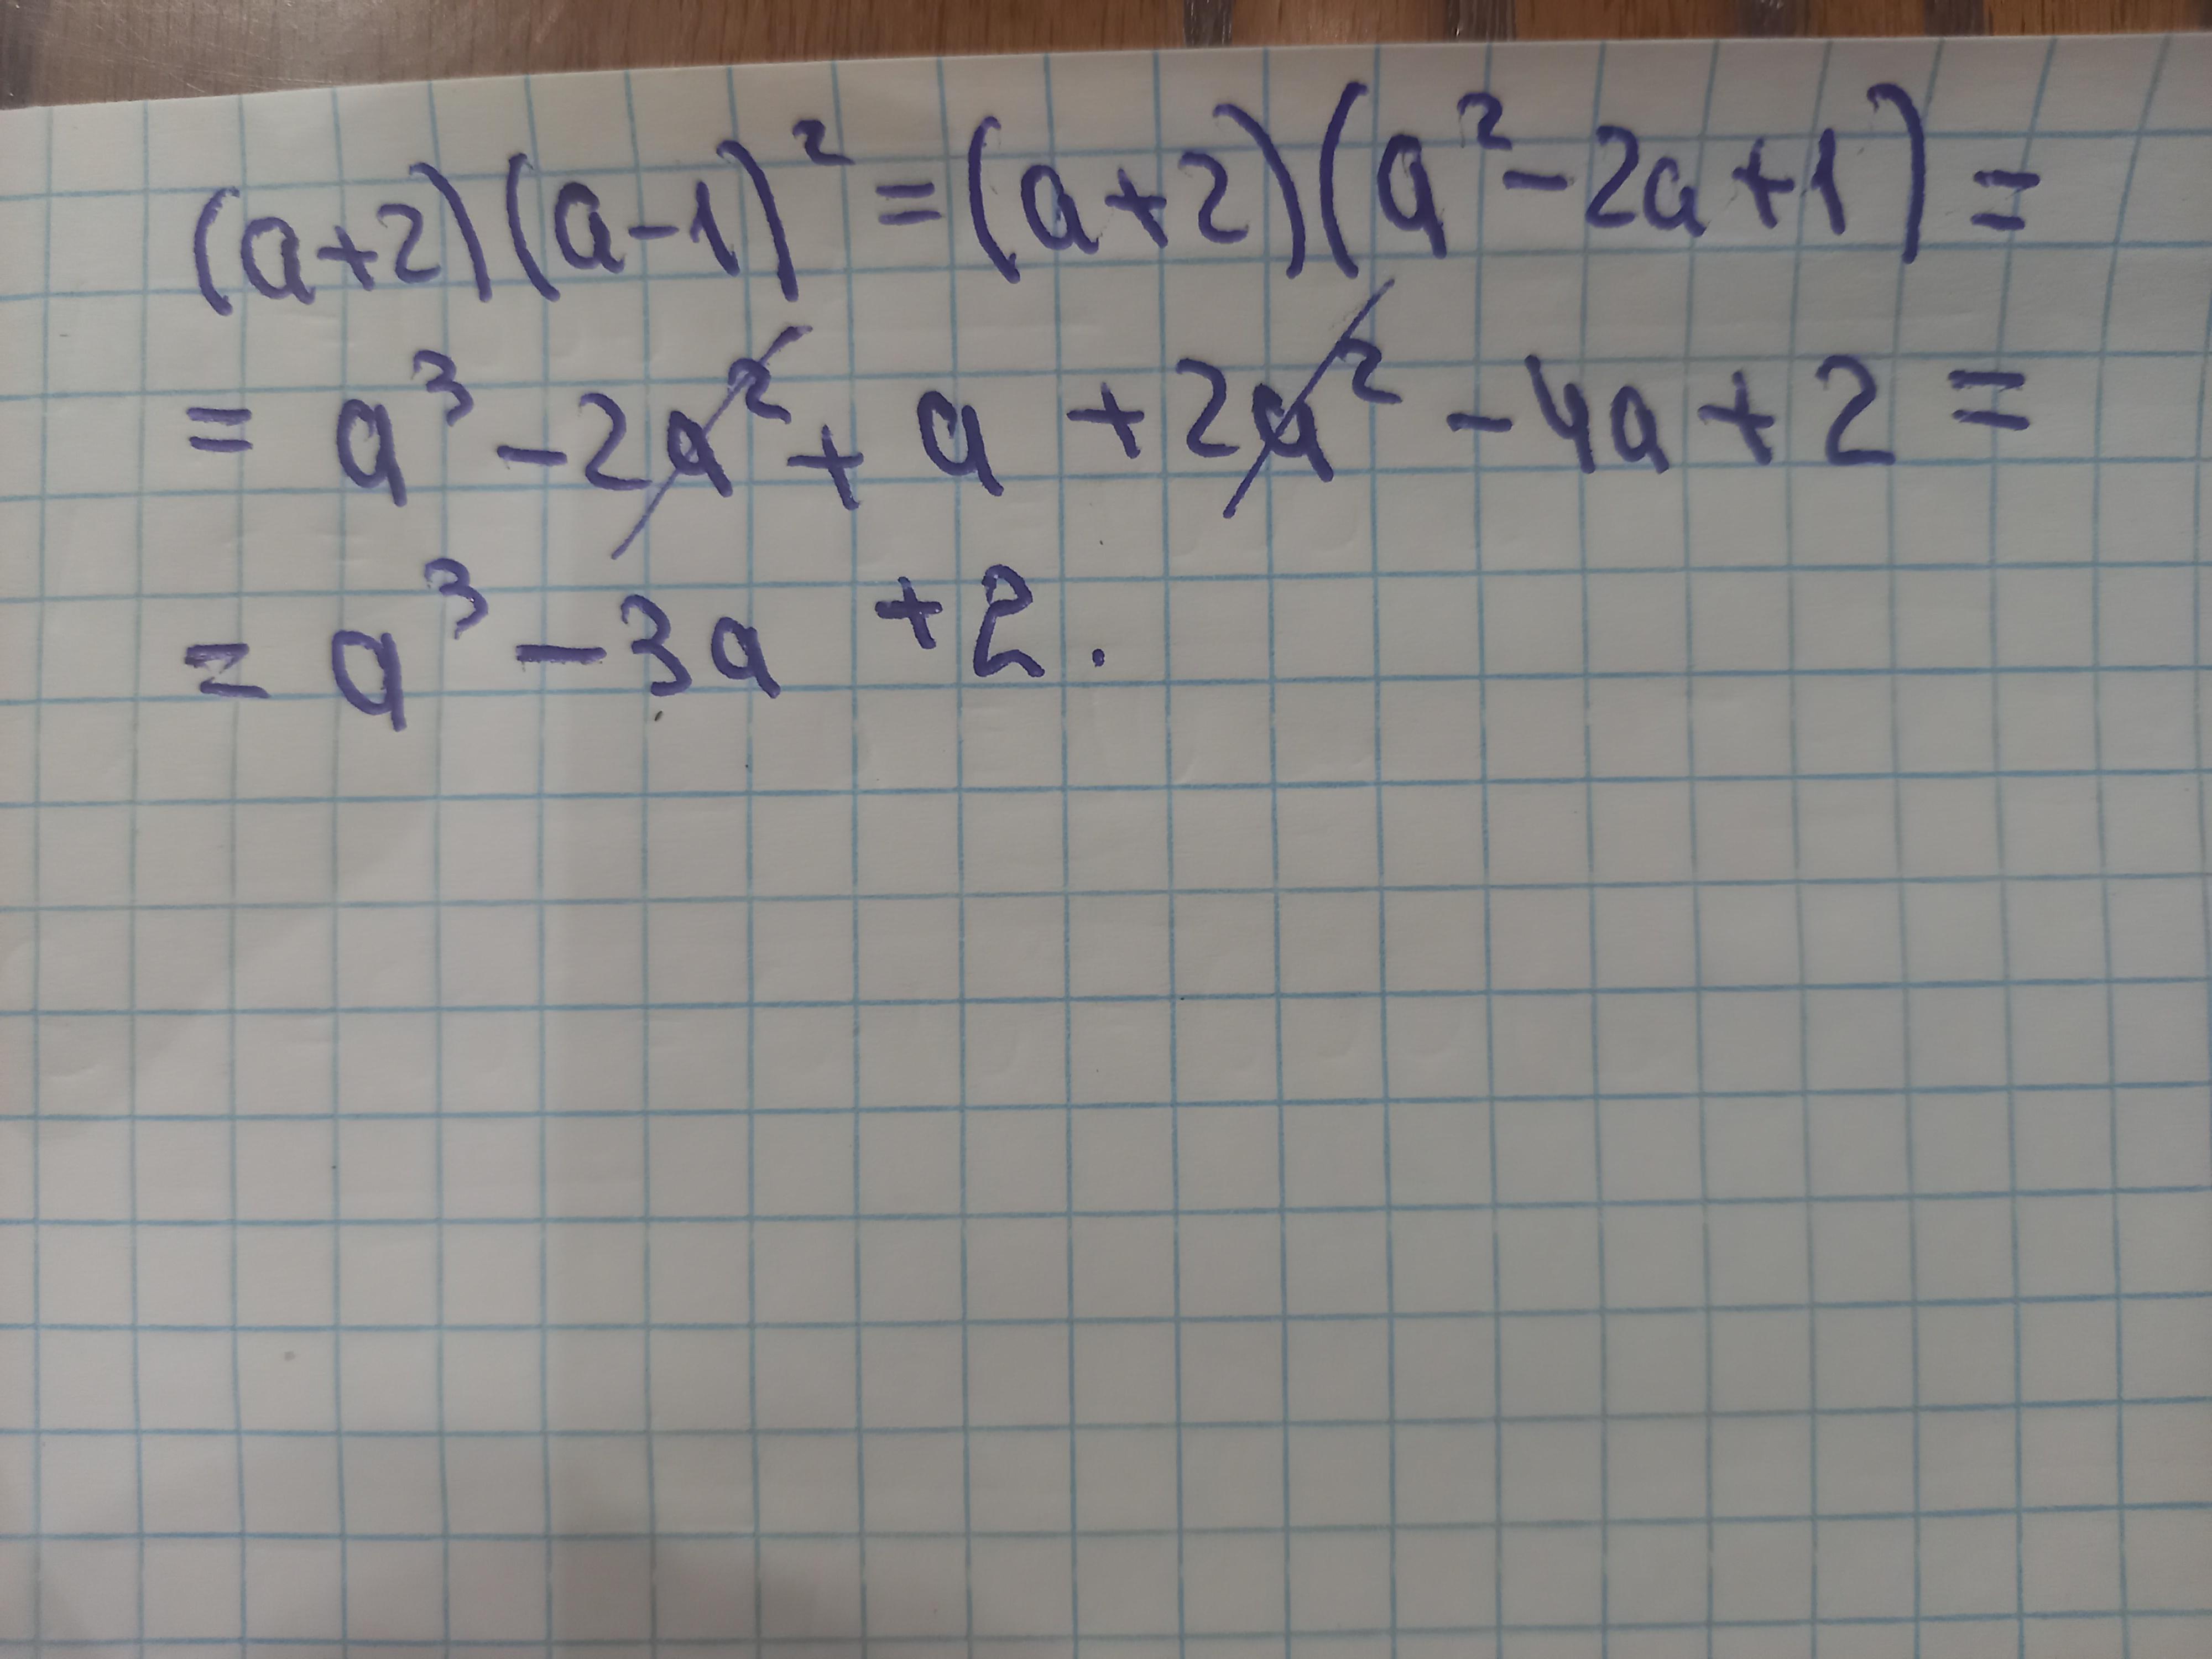 (a+2)(a-1)² = (a+2)(a²-2a+1) =
= a³ - 2a² + a + 2a² - 4a + 2 =
= a³ - 3a + 2.